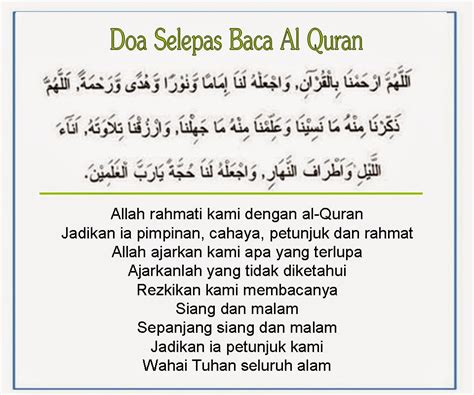 Doa Selepas Baca Al Quran
اَللَّهُمَّ ارْحَمْنَا بِالْقُرْآنِ, وَاجْعَلْهُ لَنَا إِمَامًا وَنُوْرًا وَهُدًى وَرَحْمَةً, اَللَّهُمَّ
ذَكِّرْنَا مِنْهُ مَا نَسِيْنَا وَعَلِّمْنَا مِنْهُ مَا جَهِلْنَا, وَارْزُقْنَا تِلَاوَتَهُ, آنَاءَ
اللَّيْلِ وَاَطْرَافَ النَّهَارِ, وَاجْعَلْهُ لَنَا حُجَّةً يَارَبَّ الْعٰلَمِيْنَ.
Allah rahmati kami dengan al-Quran
Jadikan ia pimpinan, cahaya, petunjuk dan rahmat
Allah ajarkan kami apa yang terlupa
Ajarkanlah yang tidak diketahui
Rezkikan kami membacanya
Siang dan malam
Sepanjang siang dan malam
Jadikan ia petunjuk kami
Wahai Tuhan seluruh alam